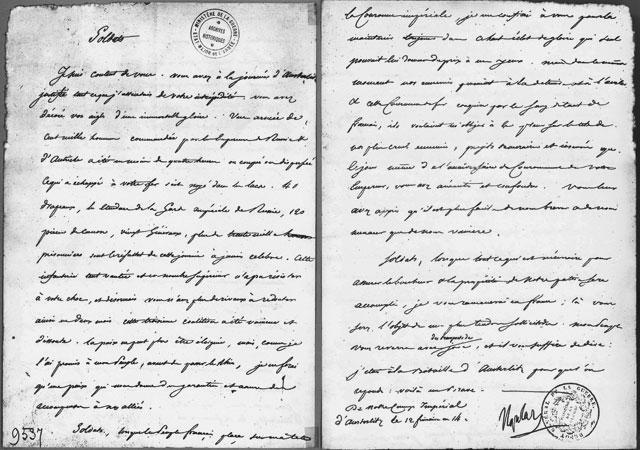 Soldats
MINISTÈRE DE LA GUERRE
ARCHIVES
HISTORIQUES
ETAT-MAJOR DE L'ARMÉE
Je suis content de vous. vous avez à la journée d'Austerlitz
justifié tout ce que j'attendais de votre intrépidité. vous avez
décoré vos aigles d'une immortelle gloire. Une armée de
Cent mille hommes commandée par les Empereurs de Russie et
d'Autriche a été en moins de quatre heures ou coupée ou dispersée
Ce qui a échappé à votre fer s'est noyé dans les lacs. 40
drapeaux, les étendards de la Garde impériale de Russie, 120
pièces de canon, vingt Généraux, plus de trente mille
prisonniers sont le résultat de cette journée à jamais célèbre. Cette
infanterie tant vantée et en nombre supérieur n'a pu résister
à votre choc, et désormais vous n'avez plus de rivaux à redouter
ainsi en deux mois cette troisième coalition a été vaincue et
dissoute. La paix ne peut plus être éloignée, mais, comme je
l'ai promis à mon Peuple, avant de passer le Rhin, je ne ferai
qu'une paix qui nous donne des garanties et assure des
récompenses à nos alliés.
9537
Soldats, lorsque le Peuple français plaça sur ma tête
la Couronne impériale je me confiai à vous pour la
maintenir toujours dans ce haut éclat de gloire qui seul
pouvait lui donner du prix à mes yeux. mais dans le même
moment nos ennemis pensaient à la détruire et à l'avilir
Et cette Couronne de fer conquise par le sang de tant de
français, ils voulaient m'obliger à la placer sur la tête de
nos plus cruels ennemis, projets téméraires et insensés que
le jour même de l'anniversaire du Couronnement de votre
Empereur, vous avez anéantis et confondus. Vous leur
avez appris qu'il est plus facile de nous braver et de nous
menacer que de nous vaincre.
Soldats, lorsque tout ce qui est nécessaire pour
assurer le bonheur et la prospérité de notre patrie sera
accompli, je vous ramènerai en france; là vous
serez l'objet de mes plus tendres sollicitudes. mon Peuple
vous reverra avec joie, et il vous suffira de dire:
j'étais à la bataille d'Austerlitz pour que l'on
réponde: voilà un brave.
De notre Camp Impérial
d'Austerlitz le 12 frimaire an 14.
DE LA GUERRE